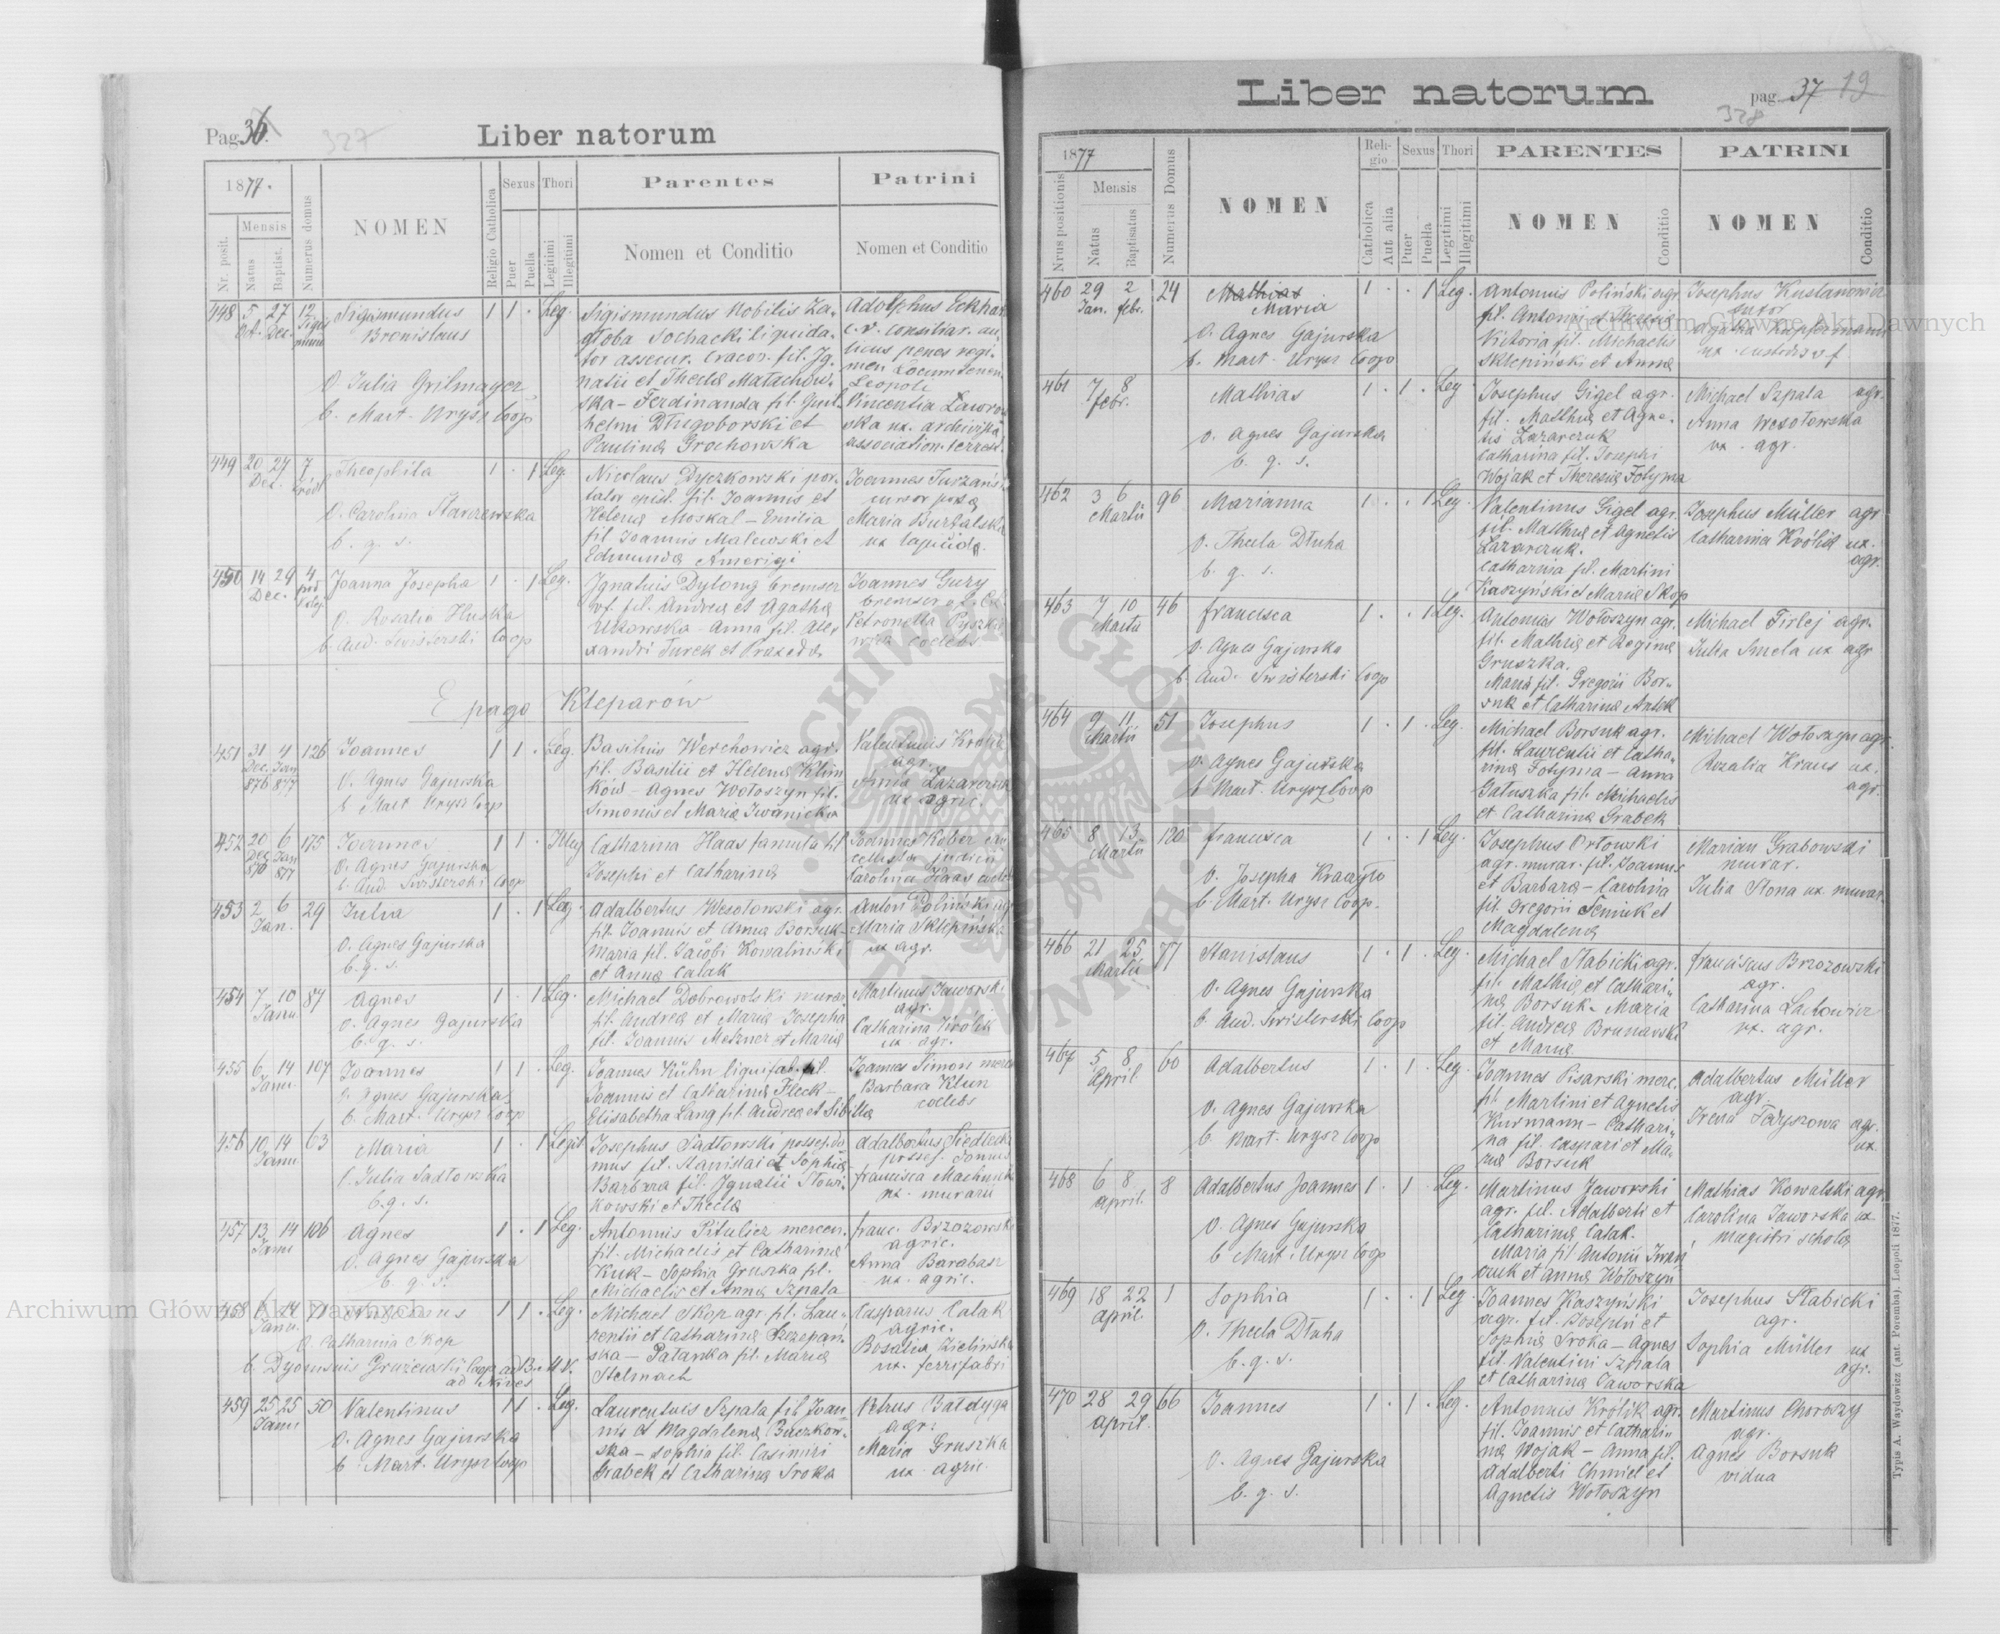 Pag. 36.
327
Liber natorum
1877.
Nr. posit.
Mensis
Natus
Baptist.
Numerus domus
NOMEN
Religio Catholica
Sexus
Puer
Puella
Thori
Legitimi
Illegitimi
Parentes
Nomen et Conditio
Patrini
Nomen et Conditio
448 5 27 12 Sigismundus 1 1 . Leg. Sigismundus Nobilis Za- Adolphus Eckhar
Oct. Dec. Bronislaus globa Sochacki liquida- c. r. consiliar. au
tor assecur. Cracov. fil. Ig- licus penes regi-
O. Julia Grilmayer natii et Thecla Małachow- men Locumtenen.
b. Mart. Urysz Coop ska - Ferdinanda fil. Guil- Leopoli
helmi Długoborski et Vincentia Lawro
Paulina Grochowska ska ux. archivista
association. terrest.
449 20 27 7 Theophila 1 . 1 Leg. Nicolaus Dyczkowski por-
Dec. tator epist. fil. Joannis et
O. Carolina Stavzewska Helena Moskal - Emilia Maria Burbalska
b. q. s. fil Joannis Malewski et ux lapicida.
Edmunda Amerigi
450 14 29 4 Joanna Josepha 1 . 1 Leg. Ignatius Dylong bremser Joannes Gury
Dec. vf. fil. Andrea et Agatha bremser
O. Rosalia Huska Ukowska - Anna fil. Alex Petronella Pyszko
b. And. Swisterski Coop xandri Turek et Praxeda wska coelebs
E pago Kleparów
451 31 4 126 Joannes 1 1 . Leg. Basilius Werchowicz agr. Valentinus Krolik
Dec. Jan fil. Basilii et Helena Klim agr.
876 877 O. Agnes Gajurska ków - Agnes Wołoszyn fil. Anna Lazarczuk
b Mart Urysz Coop Simonis et Maria Iwanicka ux agric.
452 20 6 175 Joannes 1 1 . Illeg Catharina Haas famula fil Joannes Kober can
Dec Jan O. Agnes Gajurska Josephi et Catharina cellista judicii
876 877 b. And. Swisterski Coop Carolina Haas coeleb
453 2 6 29 Julia 1 . 1 Leg. Adalbertus Wesołowski agr. Anton Poliński agr
Jan. O. Agnes Gajurska fil. Joannis et Anna Borsuk- Maria Sklepinska
b. q. s. Maria fil. Jacobi Kowalinski ux agr.
et Anna Calak
454 7 10 87 Agnes 1 . 1 Leg. Michael Dobrowolski murar Martinus Jaworski
Janu. O. Agnes Gajurska fil. Andrea et Maria Josepha agr.
b. q. s. fil. Joannis Metzner et Maria Catharina Krolik
ux. agr.
455 6 14 107 Joannes 1 1 . Leg. Joannes Kühn liquifab. fil. Joannes Simon merc
Janu. O. Agnes Gajurska Joannis et Catharina Fleck - Barbara Klein
b. Mart. Urysz Coop Elisabetha Lang fil. Andrea et Sibilla coelebs
456 10 14 63 Maria 1 . 1 Legit Josephus Sadłowski possess do Adalbertus Siedlecki
Janu. O. Julia Sadłowska mus fil. Stanislai et Sophia possess. domus
b. q. s. Barbara fil. Ignatii Słowi- Francisca Machunka
kowski et Thecla ux. murarii
457 13 14 106 Agnes 1 . 1 Leg. Antonius Pitulicz mercen. Franc. Brzozowski
Janu O. Agnes Gajurska fil. Michaelis et Catharina agric.
b. q. s. Kuk - Sophia Gruszka fil. Anna Barabasz
Michaelis et Anna Szpala ux. agric.
458 14 71 1 1 . Leg. Michael Skop agr. fil. Lau- Casparus Calak
Janu. O. Catharina Skop rentii et Catharina Szczepan- agric.
b. Dyonisius Gruzewski Coop ad B.M.V. ska - Palanka fil. Maria Rosalia Zielińska
ad Nives Stelmach ux. ferrifabri
459 25 25 50 Valentinus 1 1 . Leg. Laurentius Szpala fil Joan- Petrus Bałdyga
Janu O. Agnes Gajurska nis et Magdalena Buczkow- agr.
b. Mart. Urysz Coop ska - Sophia fil. Casimiri Maria Gruszka
Grabek et Catharina Sroka ux. agric.
Liber natorum
pag. 37 19
328
1877
Nrus positionis
Mensis
Natus
Baptisatus
Numerus Domus
NOMEN
Religio
Catholica
Aut alia
Sexus
Puer
Puella
Thori
Legitimi
Illegitimi
PARENTES
NOMEN
Conditio
PATRINI
NOMEN
Conditio
460 29 2 24 Mathias 1 . . 1 Leg. Antonius Poliński agr. Josephus Kustanowicz
Jan. febr. Maria fil. Antonii et Theresia sutor
O. Agnes Gajurska Victoria fil. Michaelis Agatha Kupfermann
b. Mart. Urysz Coop Sklepiński et Anna ux. custodis vf.
461 7 8 Mathias 1 . 1 . Leg. Josephus Gigel agr. Michael Szpala agr.
febr. fil. Matthia et Agne- Anna Wesołowska
O. Agnes Gajurska tis Lazarczuk ux. agr.
b. q. s. Catharina fil. Josephi
Wojak et Theresia Fotyma
462 3 6 96 Marianna 1 . . 1 Leg. Valentinus Gigel agr. Josephus Müller agr
Martii fil. Matthia et Agnetis Catharina Królik ux.
O. Thecla Dłuha Lazarczuk. agr.
b. q. s. Catharina fil. Martini
Kaszyński et Maria Skop
463 7 10 46 Francisca 1 . . 1 Leg. Antonius Wołoszyn agr. Michael Firlej agr.
Martii fil. Mathia et Regina Julia Smela ux agr
O. Agnes Gajurska Gruszka.
b. And. Swisterski Coop Maria fil. Gregorii Bor-
suk et Catharina Antek
464 9 11 51 Josephus 1 . 1 . Leg. Michael Borsuk agr. Michael Wołoszyn agr.
Martii fil. Laurentii et Catha- Rozalia Kraus ux.
O. Agnes Gajurska rina Fotyma - Anna agr.
b Mart. Urysz Coop Gałuszka fil. Michaelis
et Catharina Grabek
465 8 13 120 Francisca 1 . . 1 Leg. Josephus Orłowski Marian Grabowski
Martii agr. murar. fil. Joannis murar.
O. Josepha Kraayło et Barbara - Carolina Julia Słona ux. murar.
b. Mart. Urysz Coop. fil. Gregorii Seniuk et
Magdalena
466 21 25 77 Stanislaus 1 . 1 . Leg. Michael Słabicki agr. Franciscus Brzozowski
Martii fil. Mathia et Cathari- agr.
O. Agnes Gajurska na Borsuk. Maria Catharina Lachowicz
b. And. Swisterski Coop fil. Andrea Brunarsk ux. agr.
et Maria
467 5 8 60 Adalbertus 1 . 1 . Leg. Joannes Pisarski merc. Adalbertus Müller
April. fil Martini et Agnetis agr.
O. Agnes Gajurska Kurmann - Cathari-
b. Mart. Urysz Coop na fil. Caspari et Ma- ux.
ria Borsuk
468 6 8 8 Adalbertus Joannes 1 . 1 . Leg. Martinus Jaworski Mathias Kowalski agr
April. agr. fil. Adalberti et Carolina Jaworska ux
O. Agnes Gajurska Catharina Calak. magistri schola
b Mart. Urysz Coop Maria fil Antonii Iwań
czuk et Anna Wołoszyn
469 18 22 1 Sophia 1 . . 1 Leg. Joannes Kaszyński Josephus Słabicki
April. agr. fil. Josephi et agr.
O. Thecla Dłuha Sophia Sroka - Agnes Sophia Müller ux
b. q. s. fil. Valentini Szpala agr.
et Catharina Jaworska
470 28 29 66 Joannes 1 . 1 . Leg. Antonius Królik agr. Martinus Chorbszy
April. fil. Joannis et Cathari- agr.
O. Agnes Gajurska na Wojak - Anna fil. Agnes Borsuk
b. q. s. Adalberti Chmiel et vidua
Agnetis Wołoszyn
Typis A. Waydowicz (ant. Poremba). Leopoli 1877.
Archiwum Główne Akt Dawnych
Archiwum Główne Akt Dawnych
ARCHIWUM GŁÓWNE AKT DAWNYCH